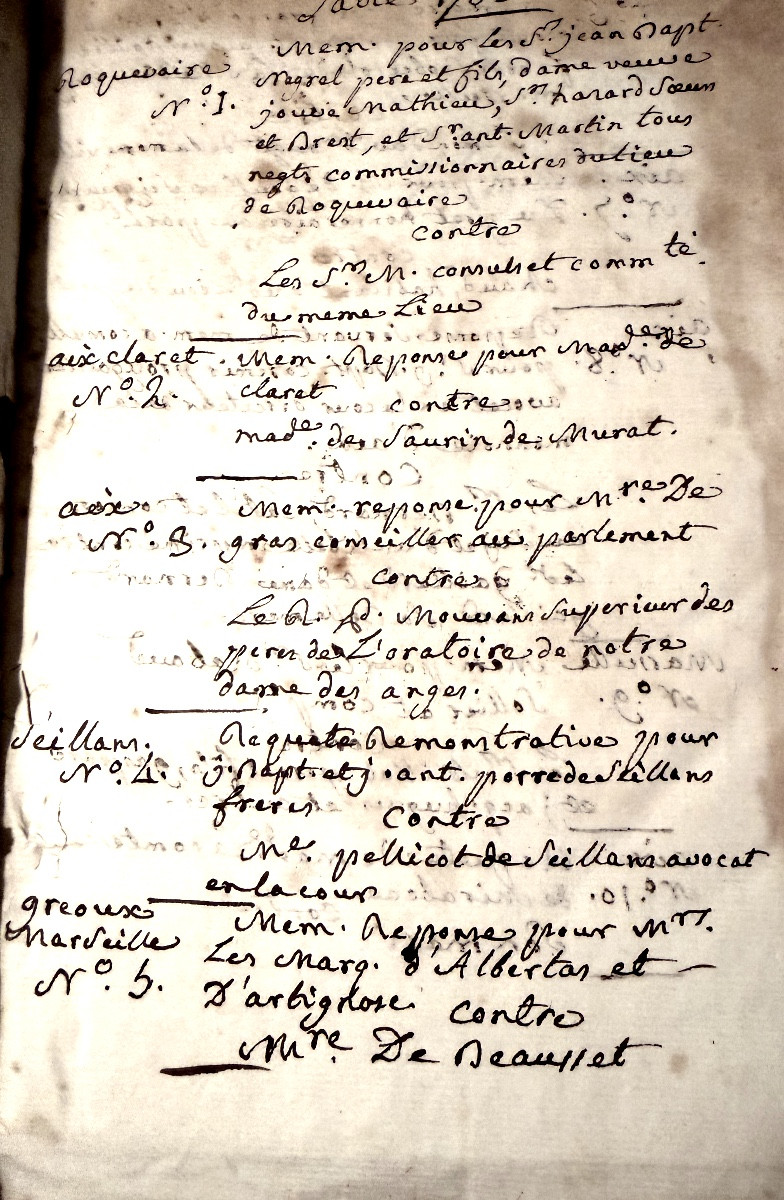 Mem. pour Les Sr. jean Bapt.
Roquevaire Negrel pere et fils, dame veuve
N°. 1. jouve Mathieu, Srs. hazard Sœurs
et Brest, et Sr. ant. Martin tous
negts. commissionnaires du lieu
de Roquevaire
contre
Les Srs. M. consuls et commté.
du meme Lieu
aix. claret. Mem. Reponse pour Made. de
N°. 2. claret
contre
made. de Saurin de Murat.
aix. Mem. reponse pour Mre. De
N°. 3. gras conseiller au parlement
contre
Le R. P. Mouvans Superieur des
peres de L'oratoire de notre
dame des anges.
Séillans. Requete Remonstrative pour
N°. 4. j. Bapt. et j. ant. porre de Seillans
freres
Contre
Me. pellicot de Seillans avocat
en la cour
greoux Mem. Reponse pour Mrs.
Marseille Les Marq. d'Albertas et
N°. 5. D'artignosc
contre
Mre. De Beausset